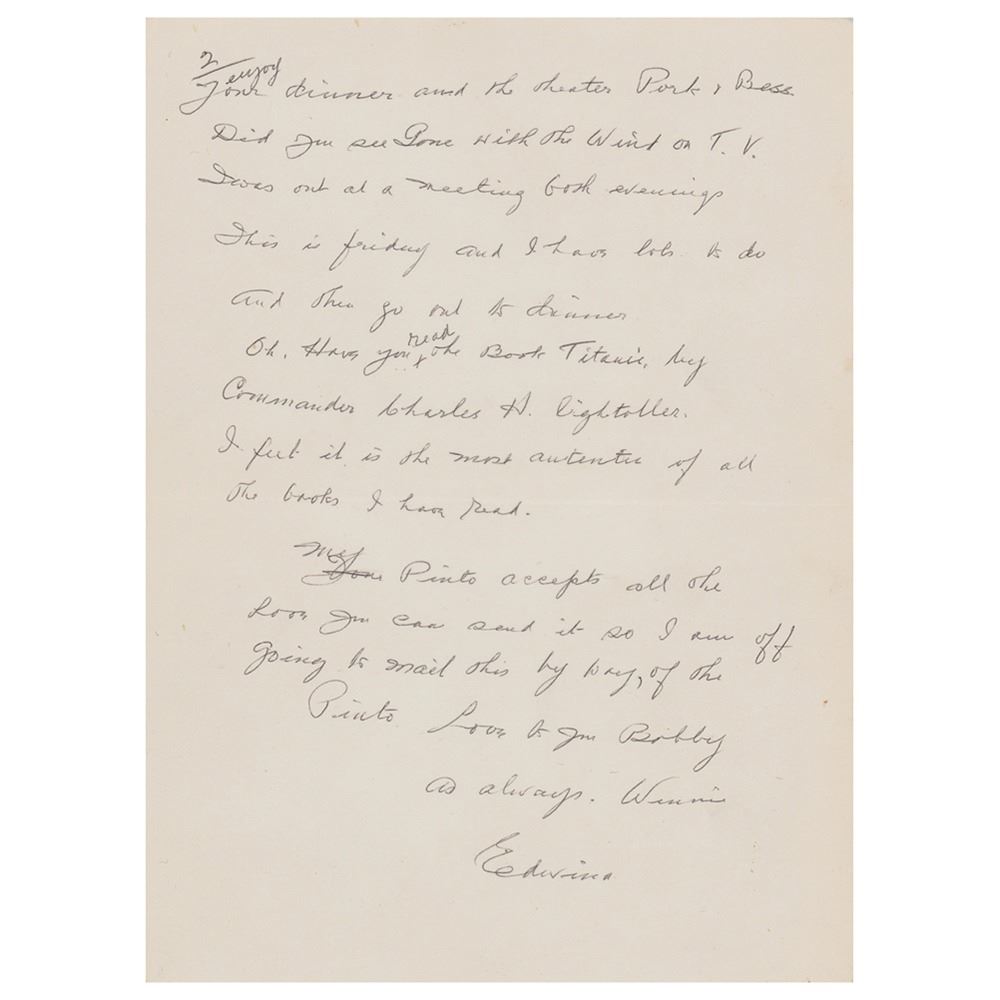 2/
enjoy
Your dinner and the theater Pork & Bess.
Did you see Gone with the Wind on T. V.
I was out at a meeting both evenings
This is friday and I have lots to do
and then go out to dinner
read
Oh, Have you x the Book Titanic, by
Commander Charles H. Lightoller.
I feel it is the most autentic of all
The books I have read.
My
Pinto accepts all the
Love you can send it so I am off
going to mail this by way, of the
Pinto. Love to you Bobby
as always. Winnie
Edwina